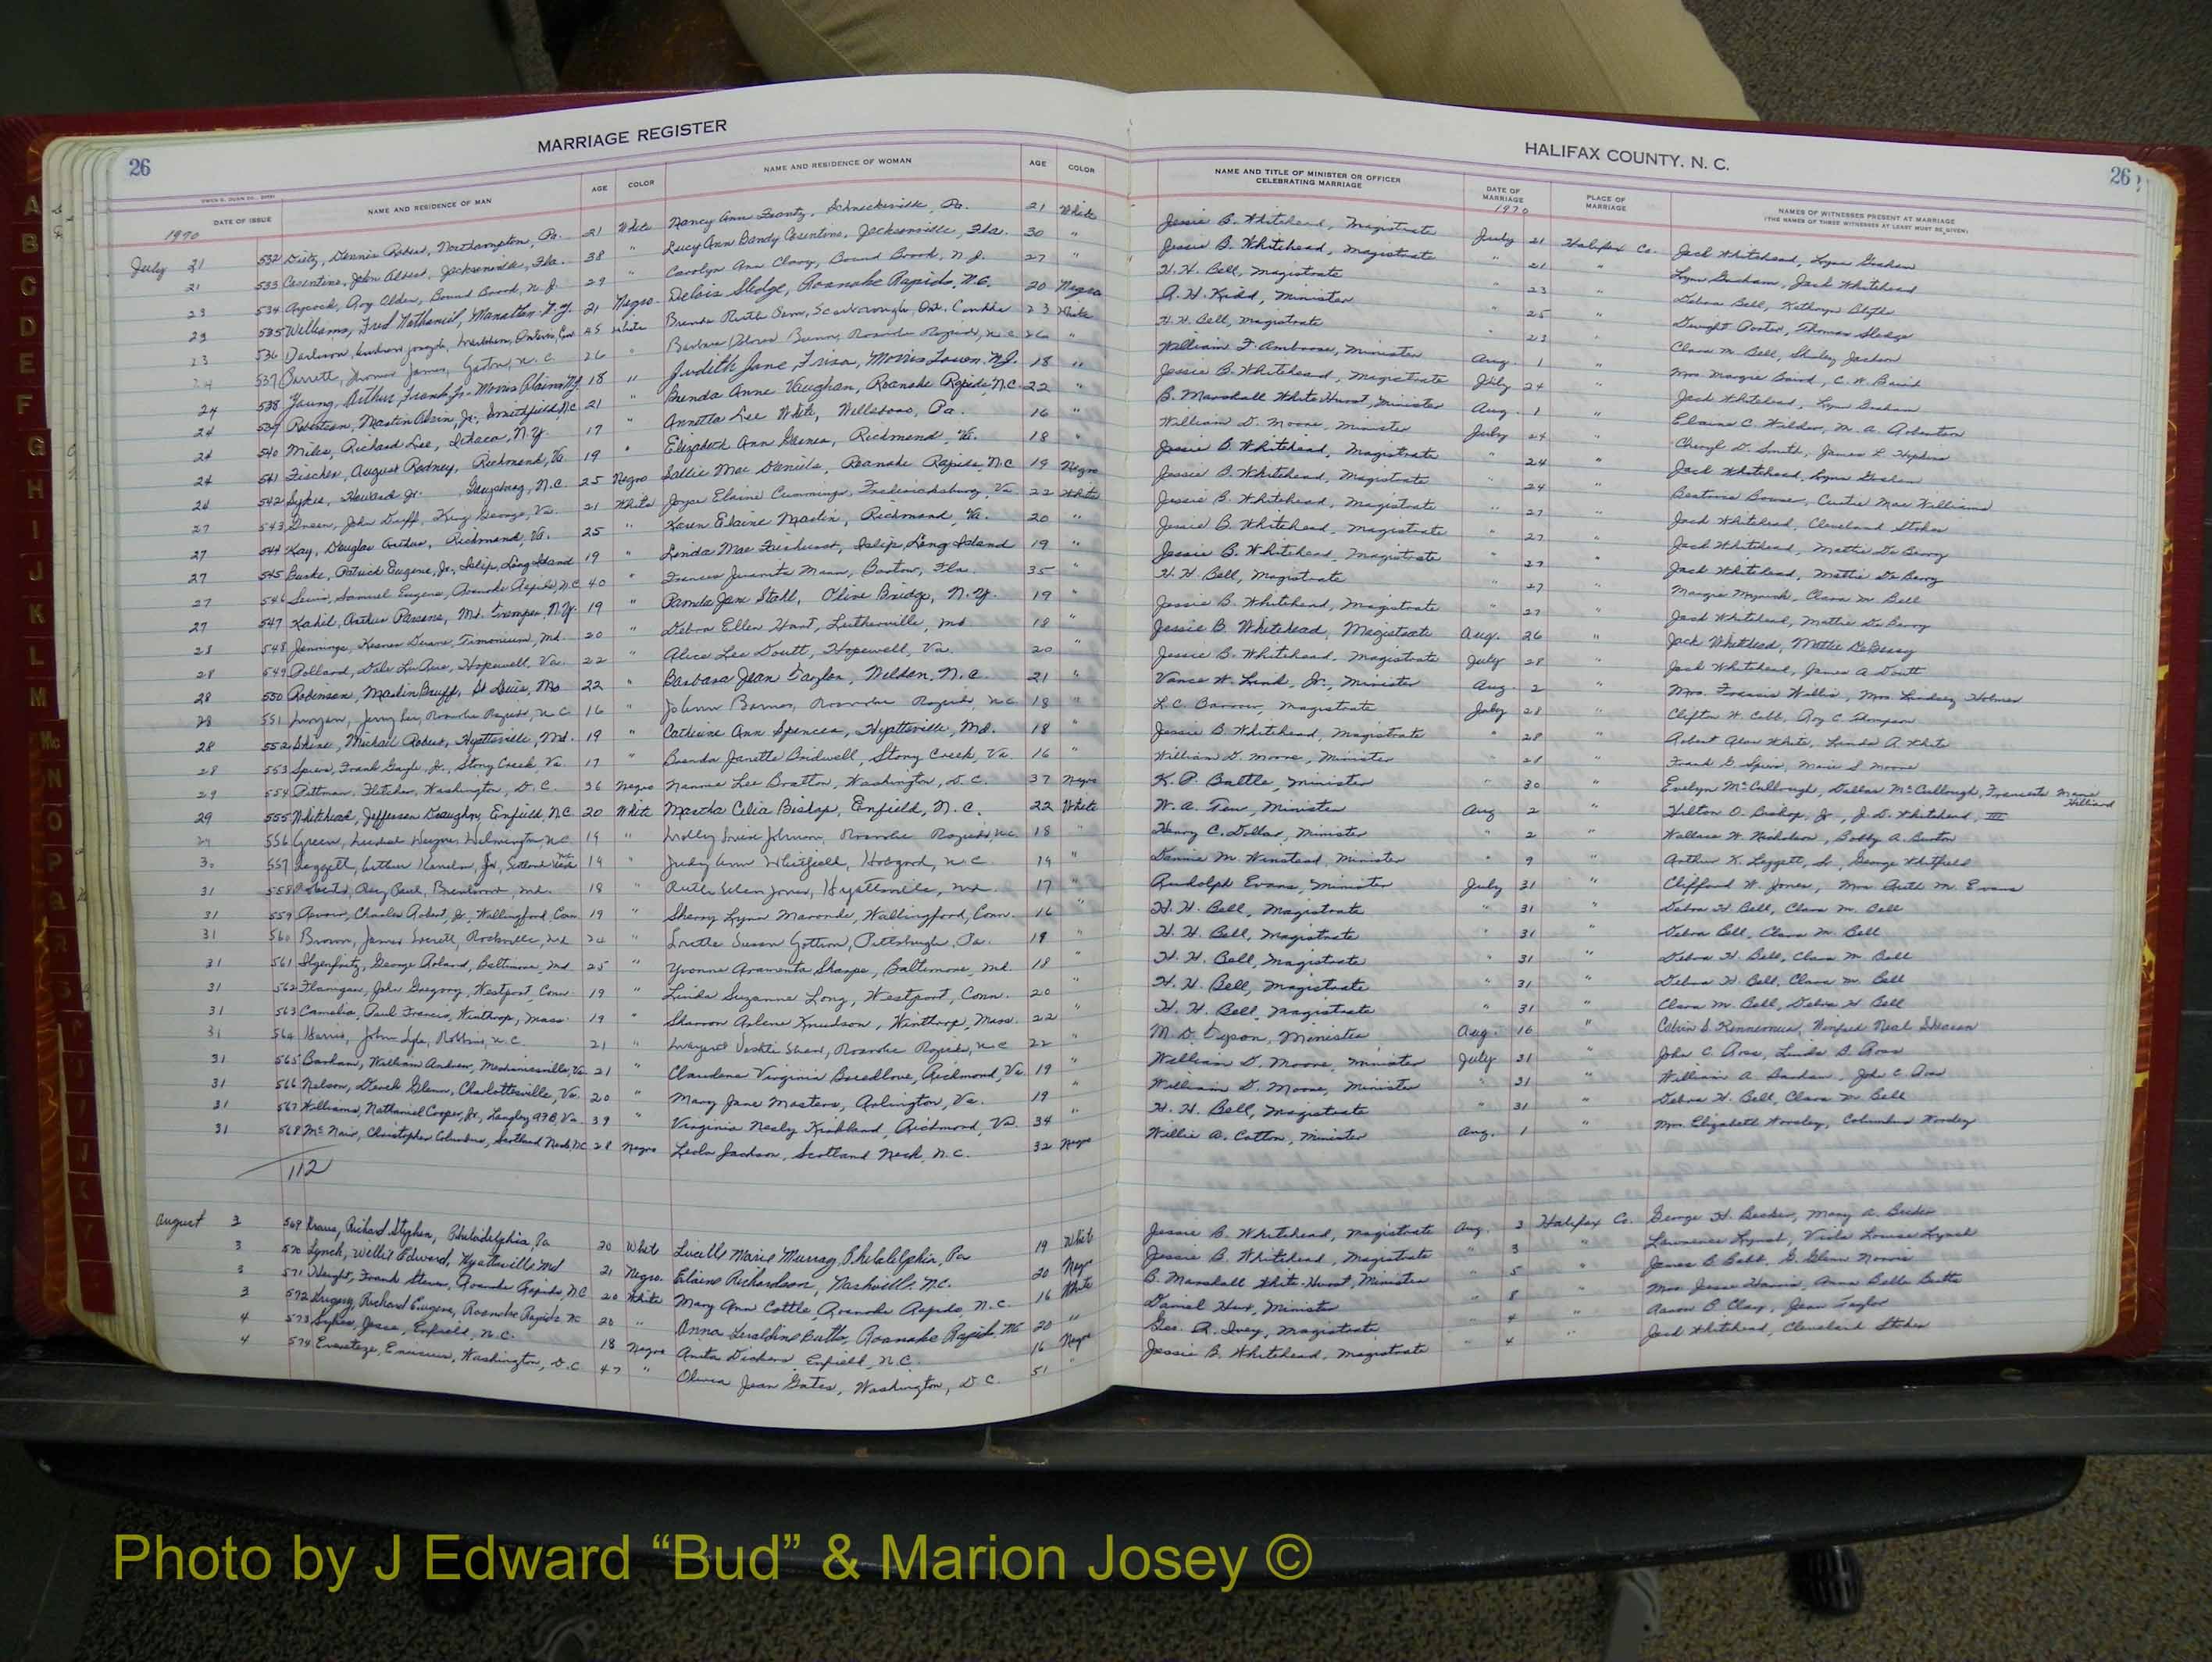 MARRIAGE REGISTER
26
DATE OF ISSUE NAME AND RESIDENCE OF MAN AGE COLOR NAME AND RESIDENCE OF WOMAN AGE COLOR
1970
July 21 532 Dietz, Dennis Robert, Northampton, Pa. 21 White Nancy Ann Frantz, Schnecksville, Pa. 21 White
21 533 Cosentino, John Albert, Jacksonville, Fla. 38 " Lucy Ann Bandy Cosentino, Jacksonville, Fla. 30 "
23 534 Aycock, Roy Olden, Bound Brook, N.J. 29 " Carolyn Ann Clary, Bound Brook, N.J. 27 "
23 535 Williams, Fred Nathaniel, N.Y. 21 Negro Delois Sledge, Roanoke Rapids, N.C. 20 Negro
23 536 45 White Brenda Ruth Scarborough, Ont. 23 White
537 Barrett, Thomas James, Gaston, N.C. 26 " Barbara Roanoke Rapids, N.C. 26 "
24 538 Young, Arthur Frank Jr. Morris Plains N.J. 18 " Judith Jane Morris Town, N.J. 18 "
24 539 Robertson, Martin Jr., Smithfield, N.C. 21 " Brenda Anne Vaughan, Roanoke Rapids, N.C. 22 "
24 540 Miles, Richard Lee, Ithaca, N.Y. 17 " Annetta Lee White, Wellsboro, Pa. 16 "
24 541 Fischer, August Rodney, Richmond, Va. 19 " Elizabeth Ann Richmond, Va. 18 "
24 542 Sykes, Howard Jr. N.C. 25 Negro Sallie Mae Daniels, Roanoke Rapids, N.C. 19 Negro
27 543 Green, John Duff, King George, Va. 21 White Joyce Elaine Cummings, Fredericksburg, Va. 22 White
27 544 Kay, Douglas Arthur, Richmond, Va. 25 " Karen Elaine Martin, Richmond, Va. 20 "
27 545 Burke, Patrick Eugene, Jr., Islip, Long Island 19 " Linda Mae Islip, Long Island 19 "
27 546 Lewis, Samuel Eugene, Roanoke Rapids, N.C. 40 " Frances Juanita Mann, Bartow, Fla. 35 "
27 547 Kahil, Arthur Parsons, Mt. Tremper, N.Y. 19 " Pamela Jane Stahl, Olive Bridge, N.Y. 19 "
28 548 Jennings, Duane, Timonium, Md. 20 " Debra Ellen Hunt, Lutherville, Md. 18 "
28 549 Pollard, Dale Hopewell, Va. 22 " Alice Lee Doutt, Hopewell, Va. 20 "
28 550 Robinson, Martin St. Louis, Mo. 22 " Barbara Jean Taylor, Weldon, N.C. 21 "
28 551 Jerry Lee, Roanoke Rapids, N.C. 16 " JoAnn Barnes, Roanoke Rapids, N.C. 18 "
28 552 Michael Robert, Hyattsville, Md. 19 " Catherine Ann Spencer, Hyattsville, Md. 18 "
28 553 Spiers, Frank Gayle, Jr., Stony Creek, Va. 17 " Brenda Janette Bridwell, Stony Creek, Va. 16 "
29 554 Pittman, Fletcher, Washington, D.C. 36 Negro Nannie Lee Bratton, Washington, D.C. 37 Negro
29 555 Whitehead, Jefferson Enfield, N.C. 20 White Martha Celia Bishop, Enfield, N.C. 22 White
556 Green, Michael Wayne, Wilmington, N.C. 19 " Molly Johnson, Roanoke Rapids, N.C. 18 "
30 557 Leggett, Arthur Jr., Scotland Neck N.C. 19 " Judy Ann Whitfield, Hobgood, N.C. 19 "
31 558 Ray Paul, Brentwood, Md. 18 " Ruth Ellen Jones, Hyattsville, Md. 17 "
31 559 Charles Robert, Jr. Wallingford, Conn. 19 " Sherry Lynn Wallingford, Conn. 16 "
31 560 Brown, James Everett, Rockville, Md. 24 " Loretta Susan Pittsburgh, Pa. 19 "
31 561 Ilgenfritz, George Roland, Baltimore, Md. 25 " Yvonne Araminta Sharpe, Baltimore, Md. 18 "
31 562 Flanigan, John Gregory, Westport, Conn. 19 " Linda Suzanne Long, Westport, Conn. 20 "
31 563 Camelio, Paul Francis, Winthrop, Mass. 19 " Sharron Arlene Knudson, Winthrop, Mass. 22 "
31 564 Harris, John Lyle, Robbins, N.C. 21 " Margaret Roanoke Rapids, N.C. 22 "
31 565 Basham, William Andrew, Mechanicsville, Va. 21 " Claudene Virginia Breedlove, Richmond, Va. 19 "
31 566 Nelson, Derek Glenn, Charlottesville, Va. 20 " Mary Jane Masters, Arlington, Va. 19 "
31 567 Williams, Nathaniel Cooper, Jr., Langley AFB, Va. 39 " Virginia Neely Kirkland, Richmond, Va. 34 "
31 568 McNair, Christopher Columbus, Scotland Neck, N.C. 28 Negro Leola Jackson, Scotland Neck, N.C. 32 Negro
112
August 3 569 Kraus, Richard Stephen, Philadelphia, Pa 20 White Lucille Marie Murray, Philadelphia, Pa 19 White
3 570 Lynch, Willie Edward, Hyattsville Md 21 Negro Elaine Richardson, Nashville, N.C. 20 Negro
3 571 Height, Frank Steven, Roanoke Rapids, N.C. 20 White Mary Ann Cottle, Roanoke Rapids, N.C. 16 White
3 572 Richard Eugene, Roanoke Rapids NC 20 " Anna Geraldine Butts, Roanoke Rapids, NC 20 "
4 573 Sykes, Jesse, Enfield, N.C. 18 Negro Anita Dickens, Enfield, N.C. 16 Negro
4 574 Washington, D.C. 47 " Olivia Jean Gates, Washington, D.C. 51 "
HALIFAX COUNTY, N. C.
26
NAME AND TITLE OF MINISTER OR OFFICER CELEBRATING MARRIAGE DATE OF MARRIAGE PLACE OF MARRIAGE NAMES OF WITNESSES PRESENT AT MARRIAGE
(THE NAMES OF THREE WITNESSES AT LEAST MUST BE GIVEN)
1970
Jessie B. Whitehead, Magistrate July 21 Halifax Co. Jack Whitehead, Lynn Graham
Jessie B. Whitehead, Magistrate " 21 " Lynn Graham, Jack Whitehead
H. H. Bell, Magistrate " 23 " Debra Bell, Kathryn Blythe
A. H. Kidd, Minister " 25 " Dwight Porter, Thomas Sledge
H. H. Bell, Magistrate " 23 " Clara M. Bell, Shirley Jackson
William F. Ambrose, Minister Aug. 1 " Mrs. Margie Baird, C. W. Baird
Jessie B. Whitehead, Magistrate July 24 " Jack Whitehead, Lynn Graham
B. Marshall White Hurst, Minister Aug. 1 " Elaine C. Wilder, M. A. Robertson
William D. Moore, Minister July 24 " Cheryl D. Smith, James L. Hopkins
Jessie B. Whitehead, Magistrate " 24 " Jack Whitehead, Lynn Graham
Jessie B. Whitehead, Magistrate " 24 " Beatrice Boone, Curtis Mae Williams
Jessie B. Whitehead, Magistrate " 27 " Jack Whitehead, Cleveland Stokes
Jessie B. Whitehead, Magistrate " 27 " Jack Whitehead, Mattie De Berry
Jessie B. Whitehead, Magistrate " 27 " Jack Whitehead, Mattie De Berry
H. H. Bell, Magistrate " 27 " Margie Clara M. Bell
Jessie B. Whitehead, Magistrate " 27 " Jack Whitehead, Mattie De Berry
Jessie B. Whitehead, Magistrate Aug. 26 " Jack Whitehead, Mattie DeBerry
Jessie B. Whitehead, Magistrate July 28 " Jack Whitehead, James A. Doutt
Vance W. Link, Jr., Minister Aug. 2 " Mrs. Francis Willis, Mrs. Lindsey Holmes
L. C. Magistrate July 28 " Clifton H. Cobb, Roy C. Thompson
Jessie B. Whitehead, Magistrate " 28 " Robert Alan White, Linda A. White
William D. Moore, Minister " " Frank G. Spiers, Marie S. Moore
K. P. Battle, Minister " 30 " Evelyn McCullough, Dallas McCullough, Hilliard
W. A. Minister Aug 2 " Hilton O. Bishop, Jr., J. D. Whitehead, III
Henry C. Dollar, Minister " 2 " Wallace W. Nicholson, Bobby A. Burton
Dannie M. Winstead, Minister " 9 " Arthur K. Leggett, Sr., George Whitfield
Rudolph Evans, Minister July 31 " Clifford W. Jones, Mrs. Ruth M. Evans
H. H. Bell, Magistrate " 31 " Debra H. Bell, Clara M. Bell
H. H. Bell, Magistrate " 31 " Debra Bell, Clara M. Bell
H. H. Bell, Magistrate " 31 " Debra H. Bell, Clara M. Bell
H. H. Bell, Magistrate " 31 " Debra H. Bell, Clara M. Bell
H. H. Bell, Magistrate " 31 " Clara M. Bell, Debra H. Bell
M. D. Tyson, Minister Aug. 16 " Calvin S. Winfred Neal
William D. Moore, Minister July 31 " John C. Ross, Linda B. Ross
William D. Moore, Minister " 31 " William A. Basham, John C. Ross
H. H. Bell, Magistrate " 31 " Debra H. Bell, Clara M. Bell
Willie A. Cotton, Minister Aug. 1 " Mrs. Elizabeth Worsley, Columbus Worsley
Jessie B. Whitehead, Magistrate Aug. 3 Halifax Co. George H. Becker, Mary A. Becker
Jessie B. Whitehead, Magistrate " 3 " Lawrence Lynch, Viola Louise Lynch
B. Marshall White-Hurst, Minister " 5 " James B. Babb, G. Glenn Norris
Daniel Minister " 8 " Mrs. Jesse Harris, Anna Belle Butts
Geo. R. Ivey, Magistrate " 4 " Aaron B. Clay, Jean Taylor
Jessie B. Whitehead, Magistrate " 4 " Jack Whitehead, Cleveland Stokes
A
B
C
D
E
F
G
H
I
J
K
L
M
Mc
N
O
P
Q
R
S
T
Photo by J Edward “Bud” & Marion Josey ©